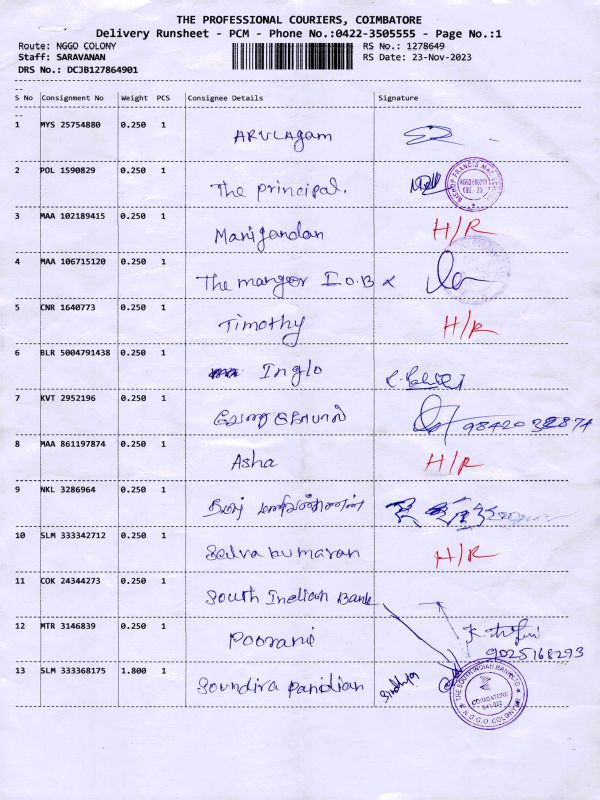 THE PROFESSIONAL COURIERS, COIMBATORE
Delivery Runsheet - PCM - Phone No.:0422-3505555 - Page No.:1
Route: NGGO COLONY RS No.: 1278649
Staff: SARAVANAN RS Date: 23-Nov-2023
DRS No.: DCJB127864901
S No Consignment No Weight PCS Consignee Details Signature
1 MYS 25754880 0.250 1 ARULAgam
2 POL 1590829 0.250 1 The principal.
3 MAA 102189415 0.250 1 Manigandan H/R
4 MAA 106715120 0.250 1 The manger I.O.B
5 CNR 1640773 0.250 1 Timothy H/R
6 BLR 5004791438 0.250 1 Inglo
7 KVT 2952196 0.250 1 வேணுகோபால்
8 MAA 861197874 0.250 1 Asha H/R
9 NKL 3286964 0.250 1
10 SLM 333342712 0.250 1 Selva kumaran H/R
11 COK 24344273 0.250 1 South Indian Bank
12 MTR 3146839 0.250 1 Poorani 9025168293
13 SLM 333368175 1.800 1 Soundira Pandian Sindhuja
THE SOUTH INDIAN BANK LTD
COIMBATORE
641 022
N.G.G.O. COLONY